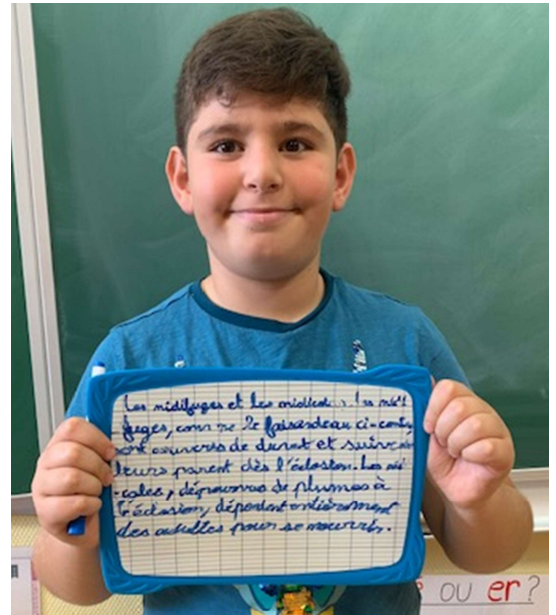 Les nidifuges et les nidicoles. Les nidi
fuges, comme le faisandeau ci-contre,
sont couverts de duvet et suivent
leurs parent dès l'éclosion. Les nidi
-coles, dépourvus de plumes à
l'éclosion, dépendent entièrement
des adultes pour se nourrir.
ou er ?